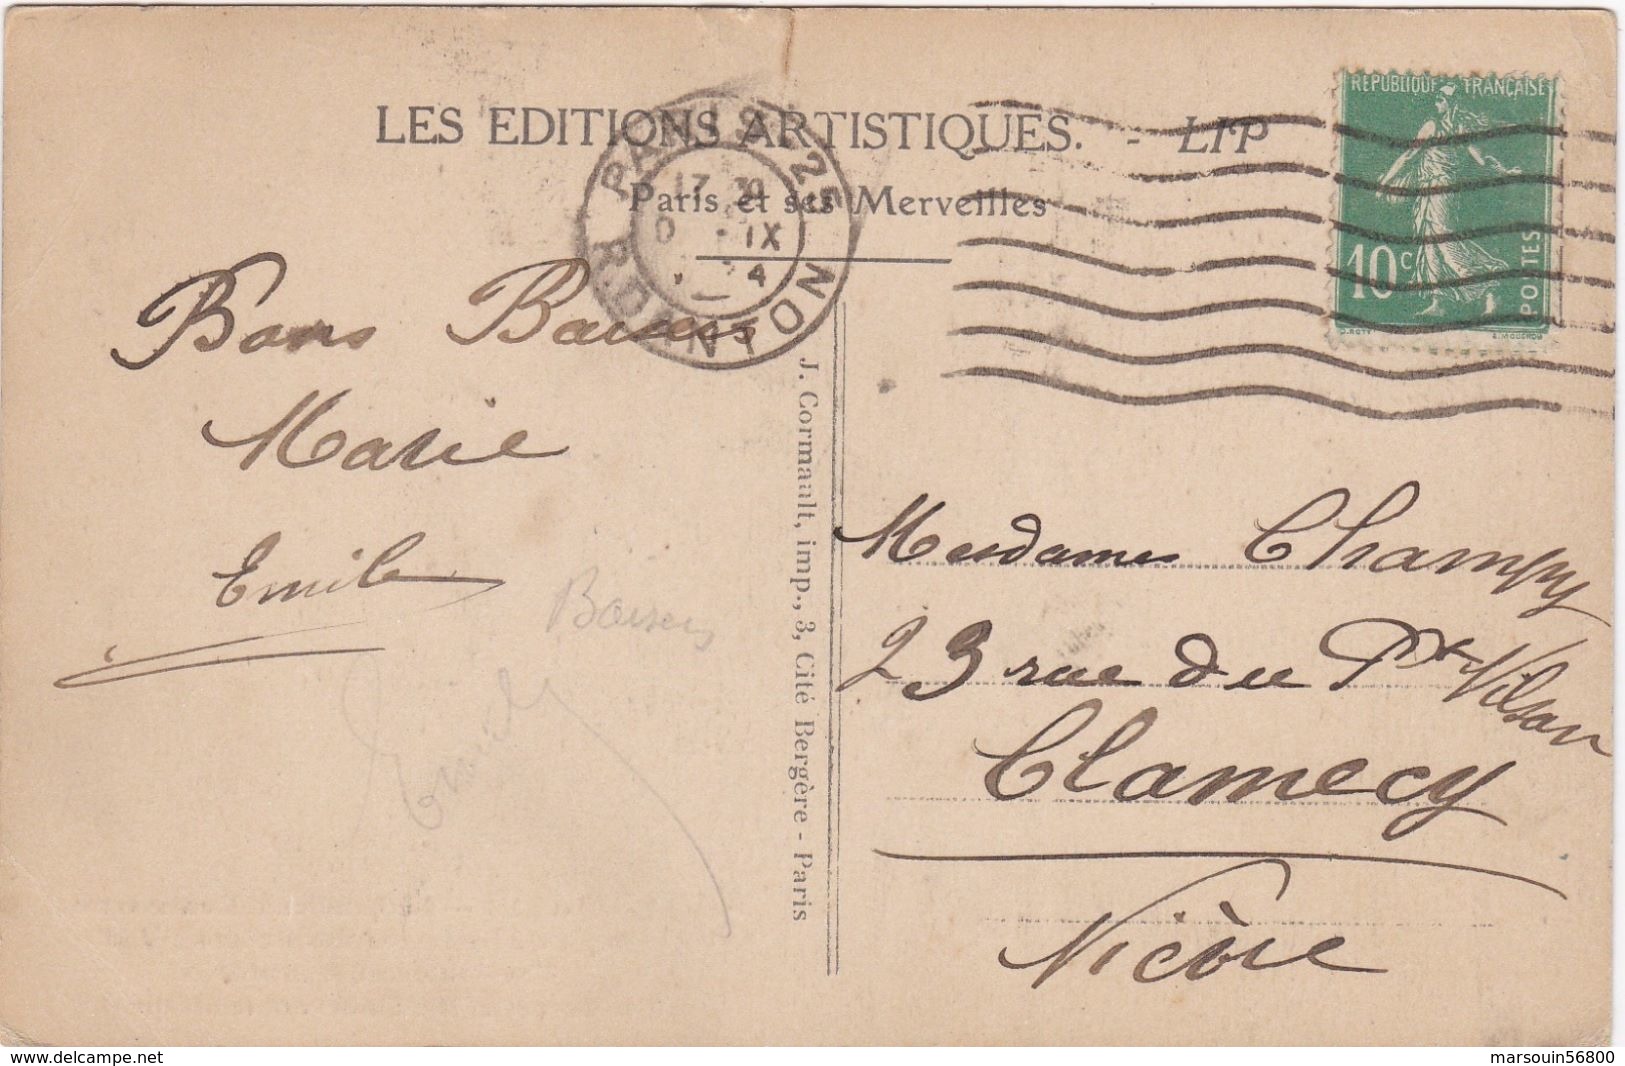 LES EDITIONS ARTISTIQUES. - LIP
Paris et ses Merveilles
PARIS 25
R. DANTON
17 30
IX
REPUBLIQUE FRANÇAISE
10 c
POSTES
O. ROTY
E. MOUCHON
Bons Baisers
Marie
Emile
Baisers
Emile
J. Cormault, imp., 3, Cité Bergère - Paris
Mesdames Champy
23 rue du Pt Wilson
Clamecy
Nièvre
www.delcampe.net
marsouin56800